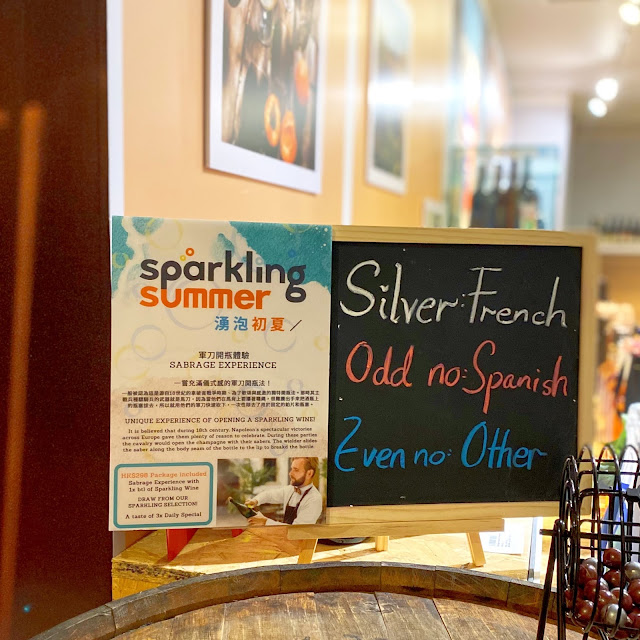 sparkling
summer
湧泡初夏
軍刀開瓶體驗
SABRAGE EXPERIENCE
一嘗充滿儀式感的軍刀開瓶法！
UNIQUE EXPERIENCE OF OPENING A SPARKLING WINE!
It is believed that during 18th century, Napoleon's spectacular victories
across Europe gave them plenty of reason to celebrate. During these parties
the cavalry would open the champagne with their sabers. The wielder slides
the saber along the body seam of the bottle to the lip to break the bottle
HK$298 Package included
Sabrage Experience with
1x btl of Sparkling Wine
DRAW FROM OUR
SPARKLING SELECTION!
A taste of 3x Daily Special
Silver: French
Odd no: Spanish
Even no: Other